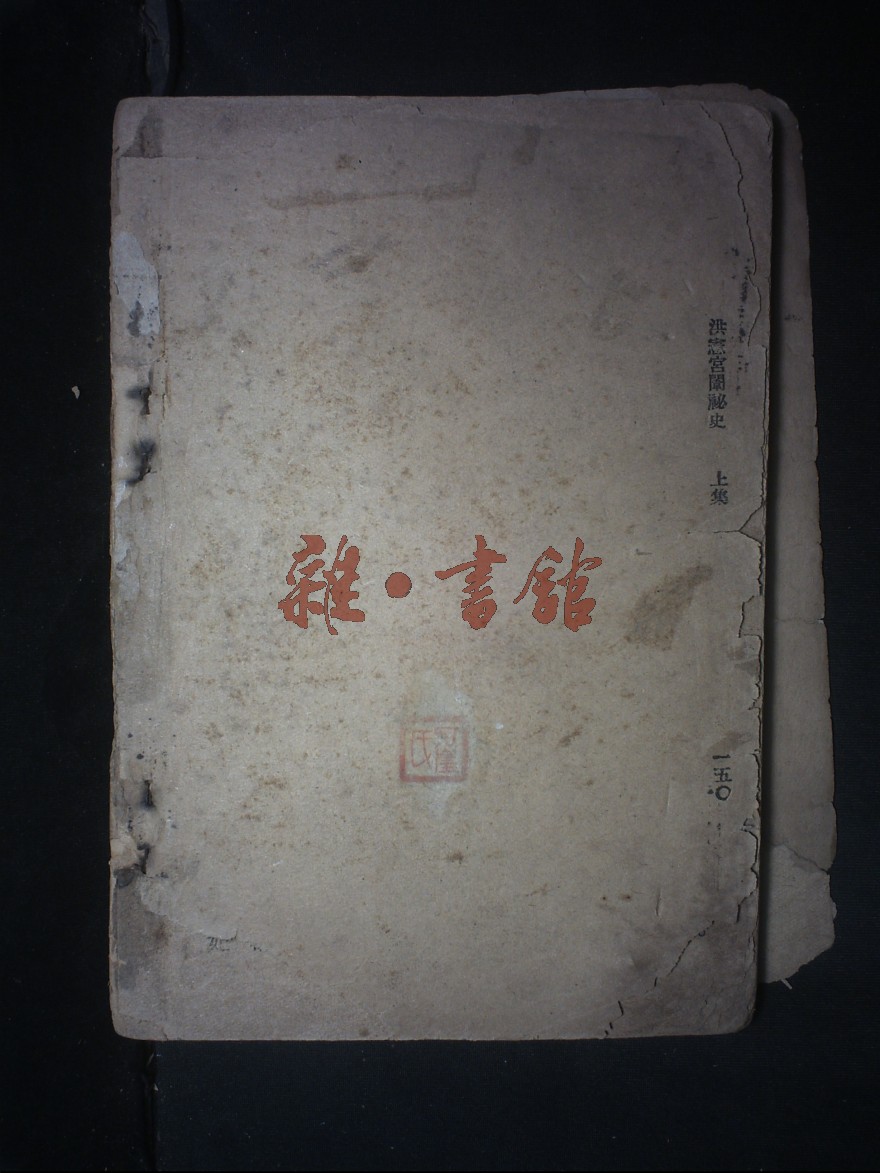 洪憲宮闈祕史　上集
一五〇
雜・書館